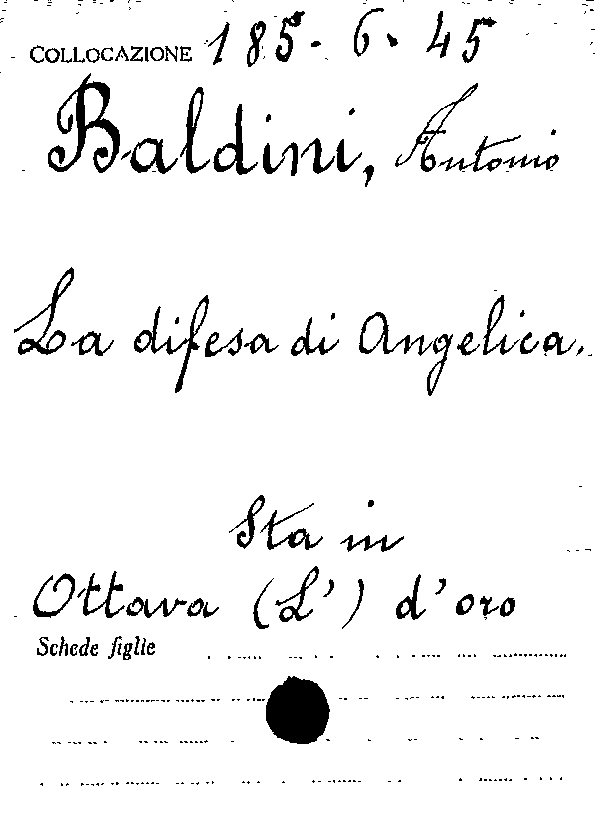 COLLOCAZIONE 185-6.45
Baldini, Antonio
La difesa di Angelica.
Sta in
Ottava (L') d'oro
Schede figlie